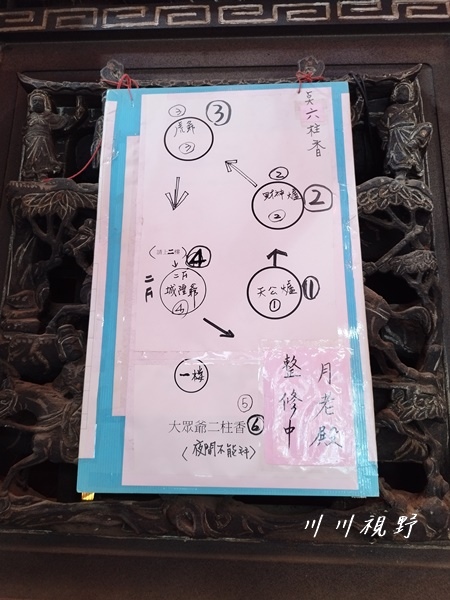 共六柱香
③ 3
虎爺
③
②
財神爐 2
②
(請上二樓) 4
二F
二F
城隍爺
④
天公爐 1
①
一樓
⑤
大眾爺二柱香 6
(夜間不能拜)
月老殿
整修中
川川視野